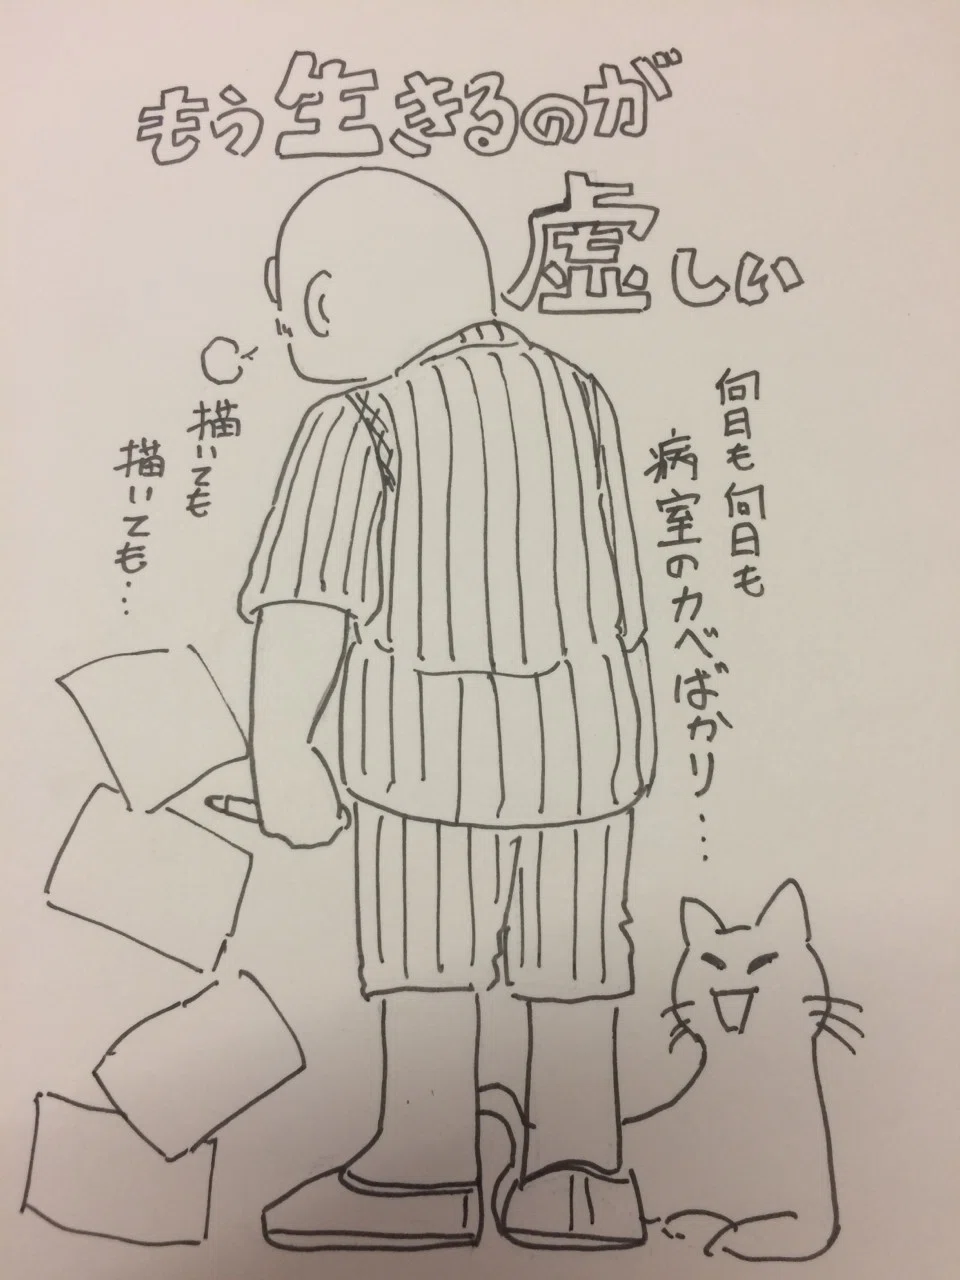 もう生きるのが
虚しい
何日も何日も
病室のカベばかり…
描いても
描いても…